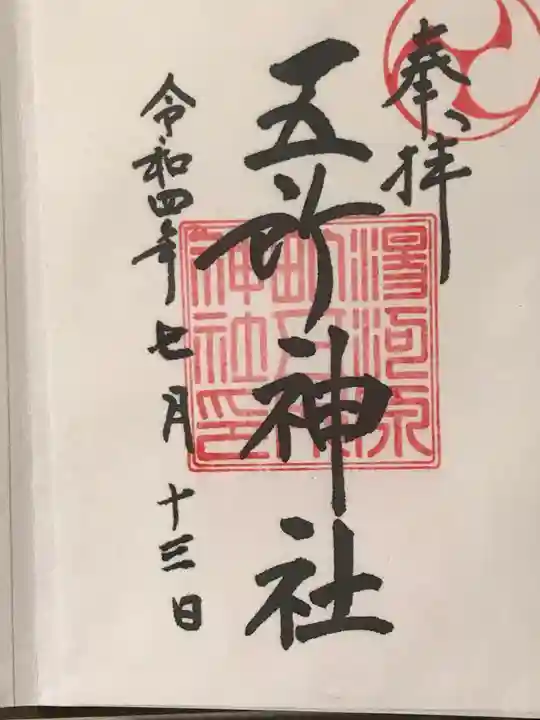 奉拝
五所神社
湯河原
神社印
令和四年七月十三日